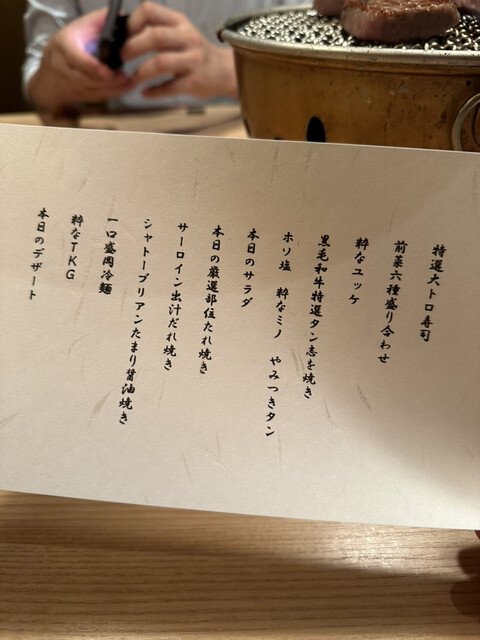 特選大トロ寿司
前菜六種盛り合わせ
粋なユッケ
黒毛和牛特選タン志を焼き
ホソ塩　粋なミノ　やみつきタン
本日のサラダ
本日の厳選部位たれ焼き
サーロイン出汁だれ焼き
シャトーブリアンたまり醤油焼き
一口盛岡冷麺
粋なTKG
本日のデザート